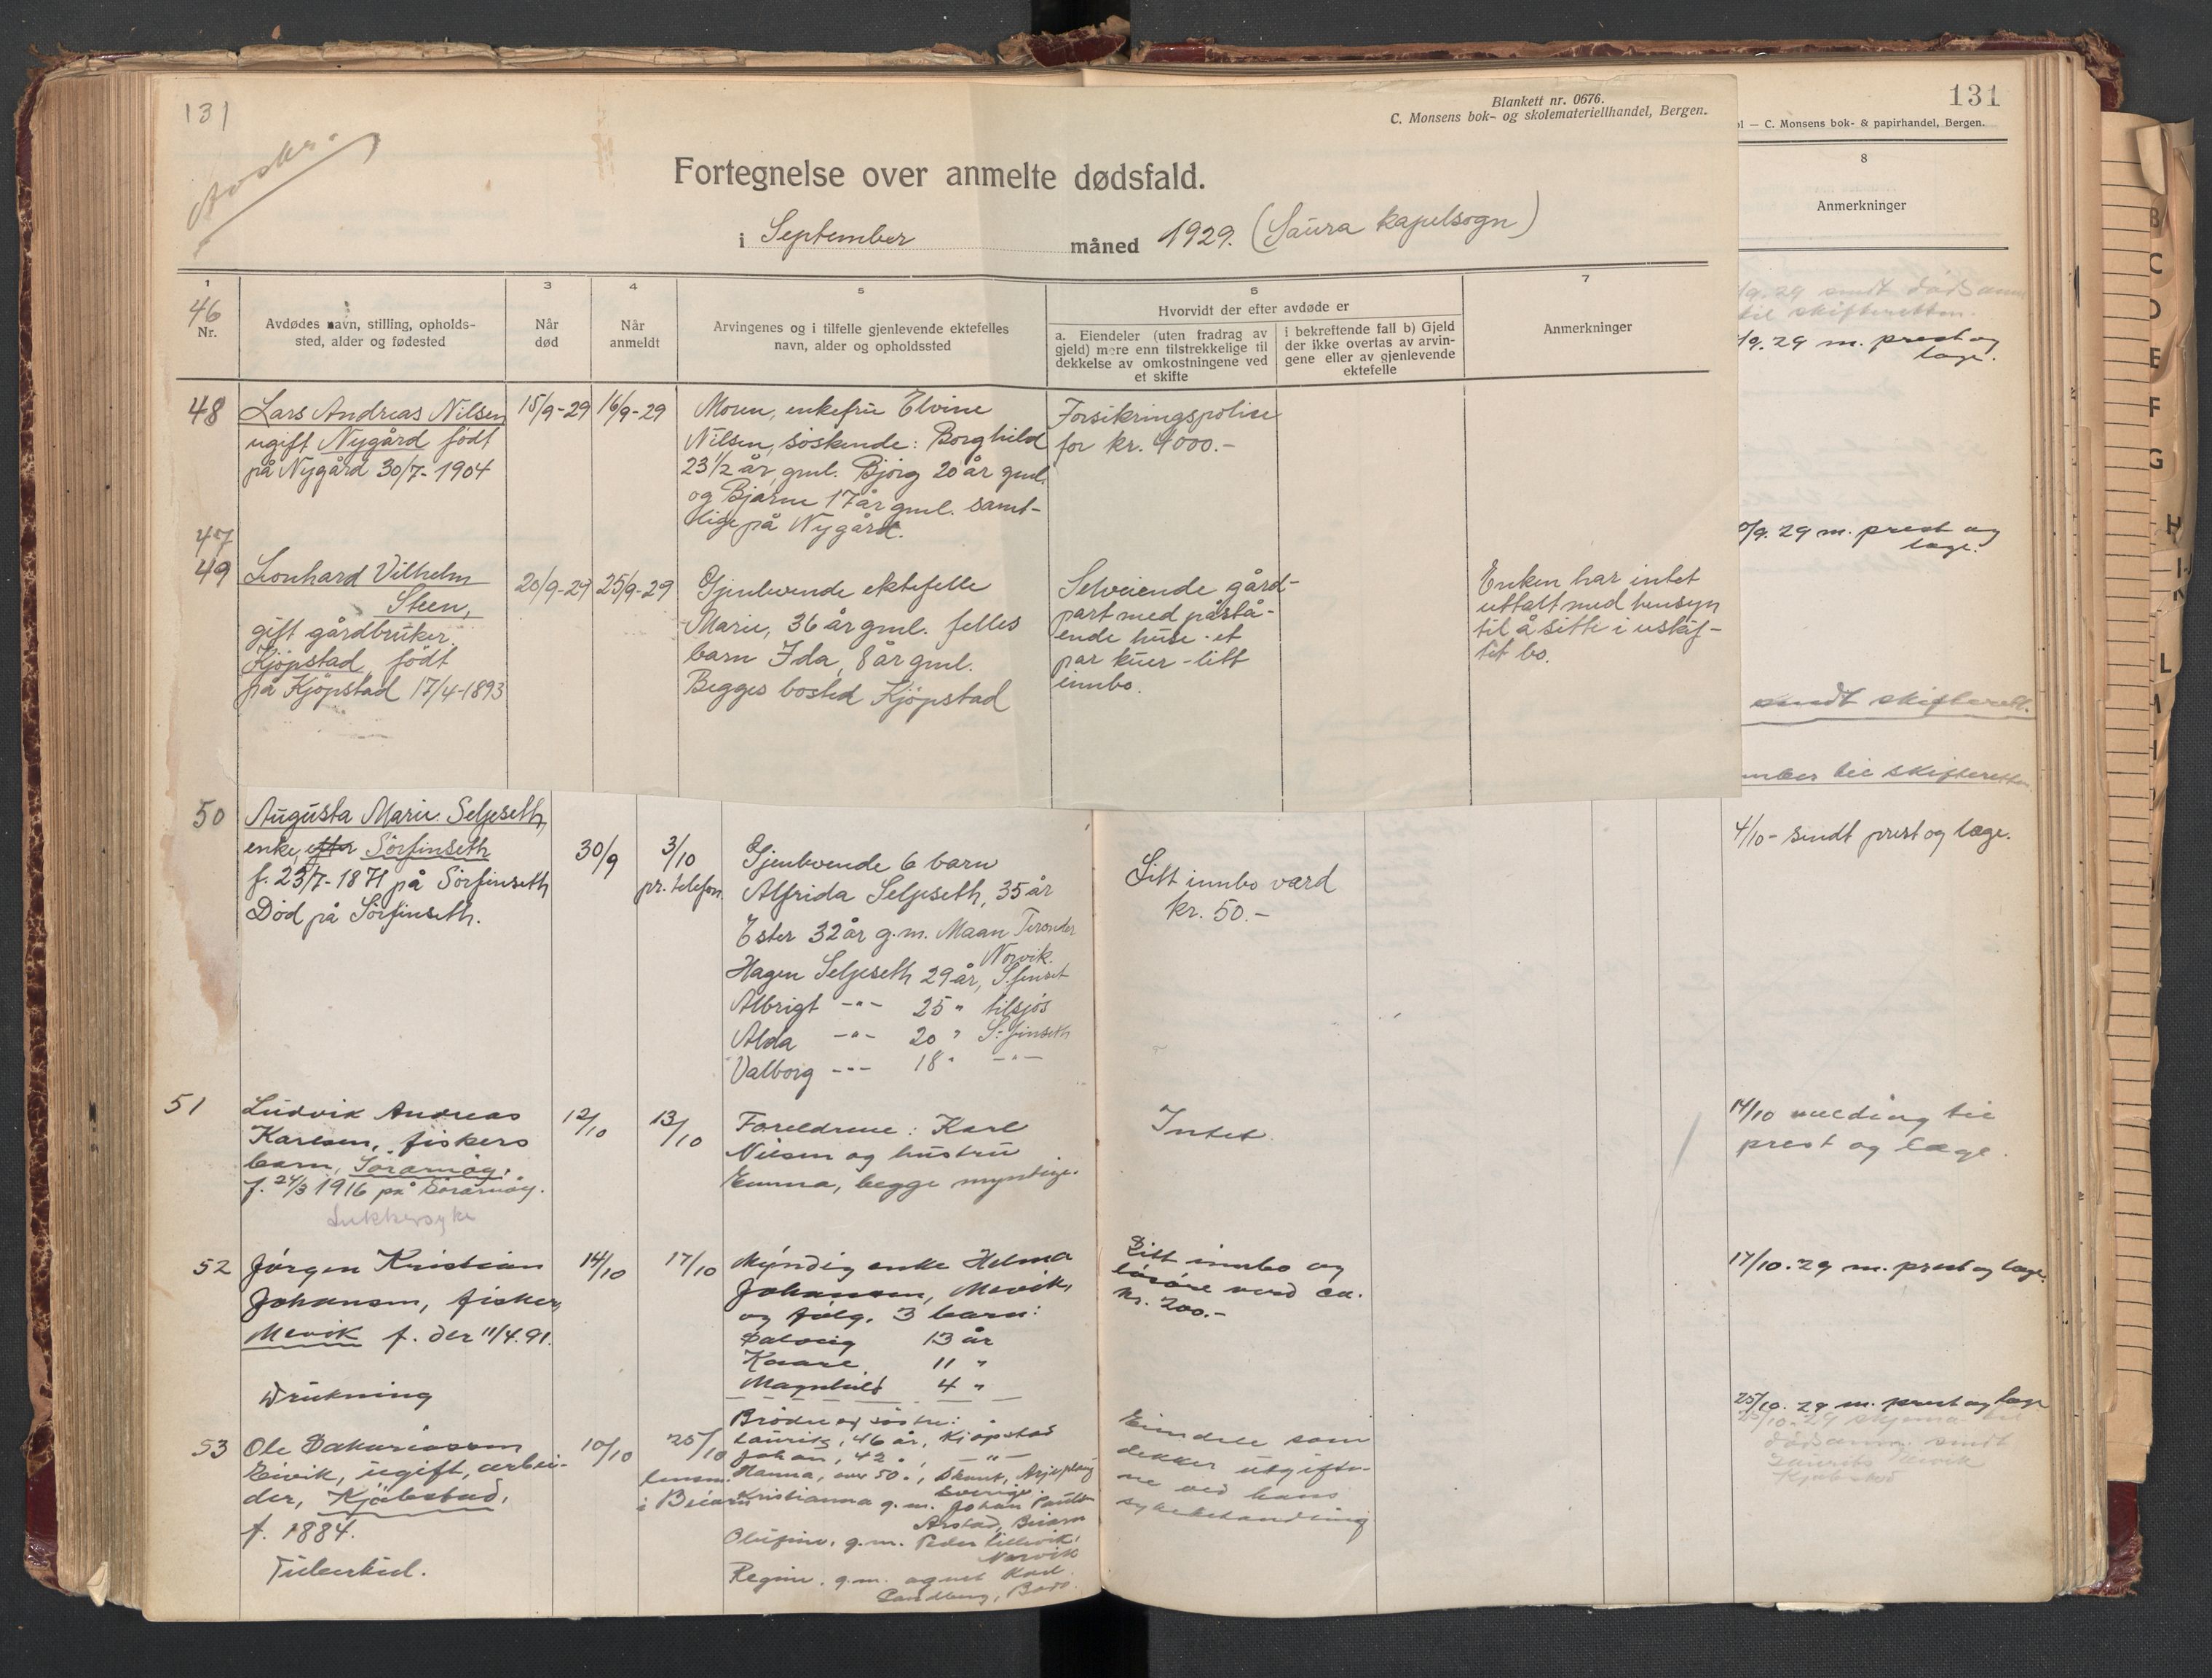 131
Avskr.
Blankett nr. 0676.
C. Monsens bok- og skolemateriellhandel, Bergen.
131
ol — C. Monsens bok- & papirhandel, Bergen.
Fortegnelse over anmelte dødsfald.
i September måned 1929. (Saura kapelsogn)
1
46
Nr.
Avdødes navn, stilling, opholds-
sted, alder og fødested
3
Når
død
4
Når
anmeldt
5
Arvingenes og i tilfelle gjenlevende ektefelles
navn, alder og opholdssted
6
Hvorvidt der efter avdøde er
a. Eiendeler (uten fradrag av
gjeld) mere enn tilstrekkelige til
dekkelse av omkostningene ved
et skifte
i bekreftende fall b) Gjeld
der ikke overtas av arvin-
gene eller av gjenlevende
ektefelle
7
Anmerkninger
8
Anmerkninger
48
Lars Andreas Nilsen
ugift Nygård født
på Nygård 30/7-1904
15/9-29
16/9-29
Moren, enkefru Elvine
Nilsen, søskende: Borghild
23 1/2 år gml. Bjørg 20 år gml.
og Bjarne 17 år gml. samt-
lige på Nygård.
Forsikringspolise
for kr. 4000.-
/9. 29 sendt dødsanm
til skifteretten.
/9. 29 m. prest og
læge.
47
49
Leonhard Vilhelm
Steen,
gift gårdbruker.
Kjøpstad, født
på Kjøpstad 17/4-1893
20/9-29
25/9-29
Gjenlevende ektefelle
Marie, 36 år gml. felles
barn Ida, 8 år gml.
Begges bosted Kjøpstad
Selveiende gård-
part med påstå-
ende huse - et
par kuer - litt
innbo.
Enken har intet
uttalt med hensyn
til å sitte i uskif-
tet bo.
/9. 29 m. prest og
læge.
sendt skifterett.
mber til skifteretten.
50
Augusta Marie Seljeseth,
enke, efter Sørfinseth
f. 23/7-1871 på Sørfinseth
Død på Sørfinseth.
30/9
3/10
pr. telefon.
Gjenlevende 6 barn
Alfrida Seljeseth, 35 år
Ester 32 år g.m. Maan
Narvik.
Hagen Seljeseth 29 år, S.finset
Albrigt -"- 25 " tilsjøs
Alda -"- 20 " S.finseth
Valborg -"- 18 " -"-
Litt innbo værd
kr. 50.-
4/10 - sendt prest og læge.
51
Ludvik Andreas
Karlsen, fiskers
barn, Sørarnøy.
f. 24/3 1916 på Sørarnøy.
Sukkersyke
12/10
13/10
Foreldrene: Karl
Nilsen og hustru
Emma, begge myndige.
Intet.
14/10 melding til
prest og læge.
52
Jørgen Kristian
Johansen, fisker,
Mevik f. der 11/4.91.
Drukning
14/10
17/10
Myndig enke Helma
Johansen, Mevik,
og følg. 3 barn:
Solveig 13 år
Kaare 11 "
Magnhild 4 "
Litt innbo og
løsøre verd ca.
kr. 200.-
17/10.29 m. prest og læge.
53
Ole Sakariassen
Eivik, ugift, arbei-
der, Kjøbstad,
f. 1884.
Tuberkul.
10/10
25/10
lensm.
i Beiarn
Brødre og søstre:
Laurits, 46 år, Kjøpstad
Johan, 42 ", -"-
Hanna, over 50 ", Arjeplaug
Sverige.
Kristianna g.m. Johan Paulsen
Arstad, Beiarn
Olufine, g.m. Peder Lillevik,
Narvik
Regine, g.m. agent Karl
Sandberg, Bodø.
Eiendele som
dekker utgifte-
ne ved hans
sykebehandling
25/10. 29 m. prest og læge
25/10.29 skjema til
dødsanm. sendt
Laurits Eivik
Kjøbstad
B
C
D
E
F
G
H
L